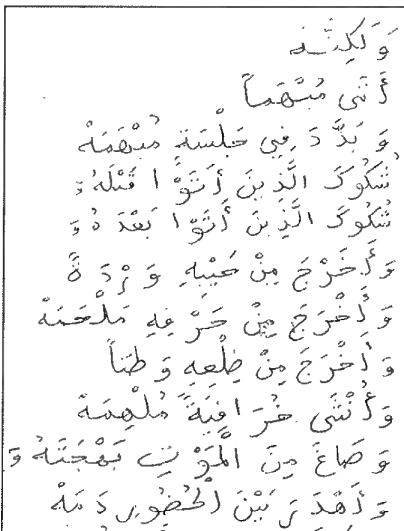 وَلَكِنَّهُ
أَتَى مُبْهَماً
وَبَدَّدَ فِي جَلْسَةٍ مُبْهَمَهْ
شُكُوكَ الَّذِينَ أَتَوْا قَبْلَهُ وَ
شُكُوكَ الَّذِينَ أَتَوْا بَعْدَهُ وَ
وَأَخْرَجَ مِنْ جَيْبِهِ وَرْدَةً
وَأَخْرَجَ مِنْ حَرْفِهِ مَلْحَمَهْ
وَأَخْرَجَ مِنْ ضِلْعِهِ وَطَناً
وَأُنْثَى خُرَافِيَةً مُلْهِمَهْ
وَصَاغَ مِنَ الْمَوْتِ بَهْجَتَهُ وَ
وَأَهْدَرَ بَيْنَ الْحُضُورِ دَمَهْ